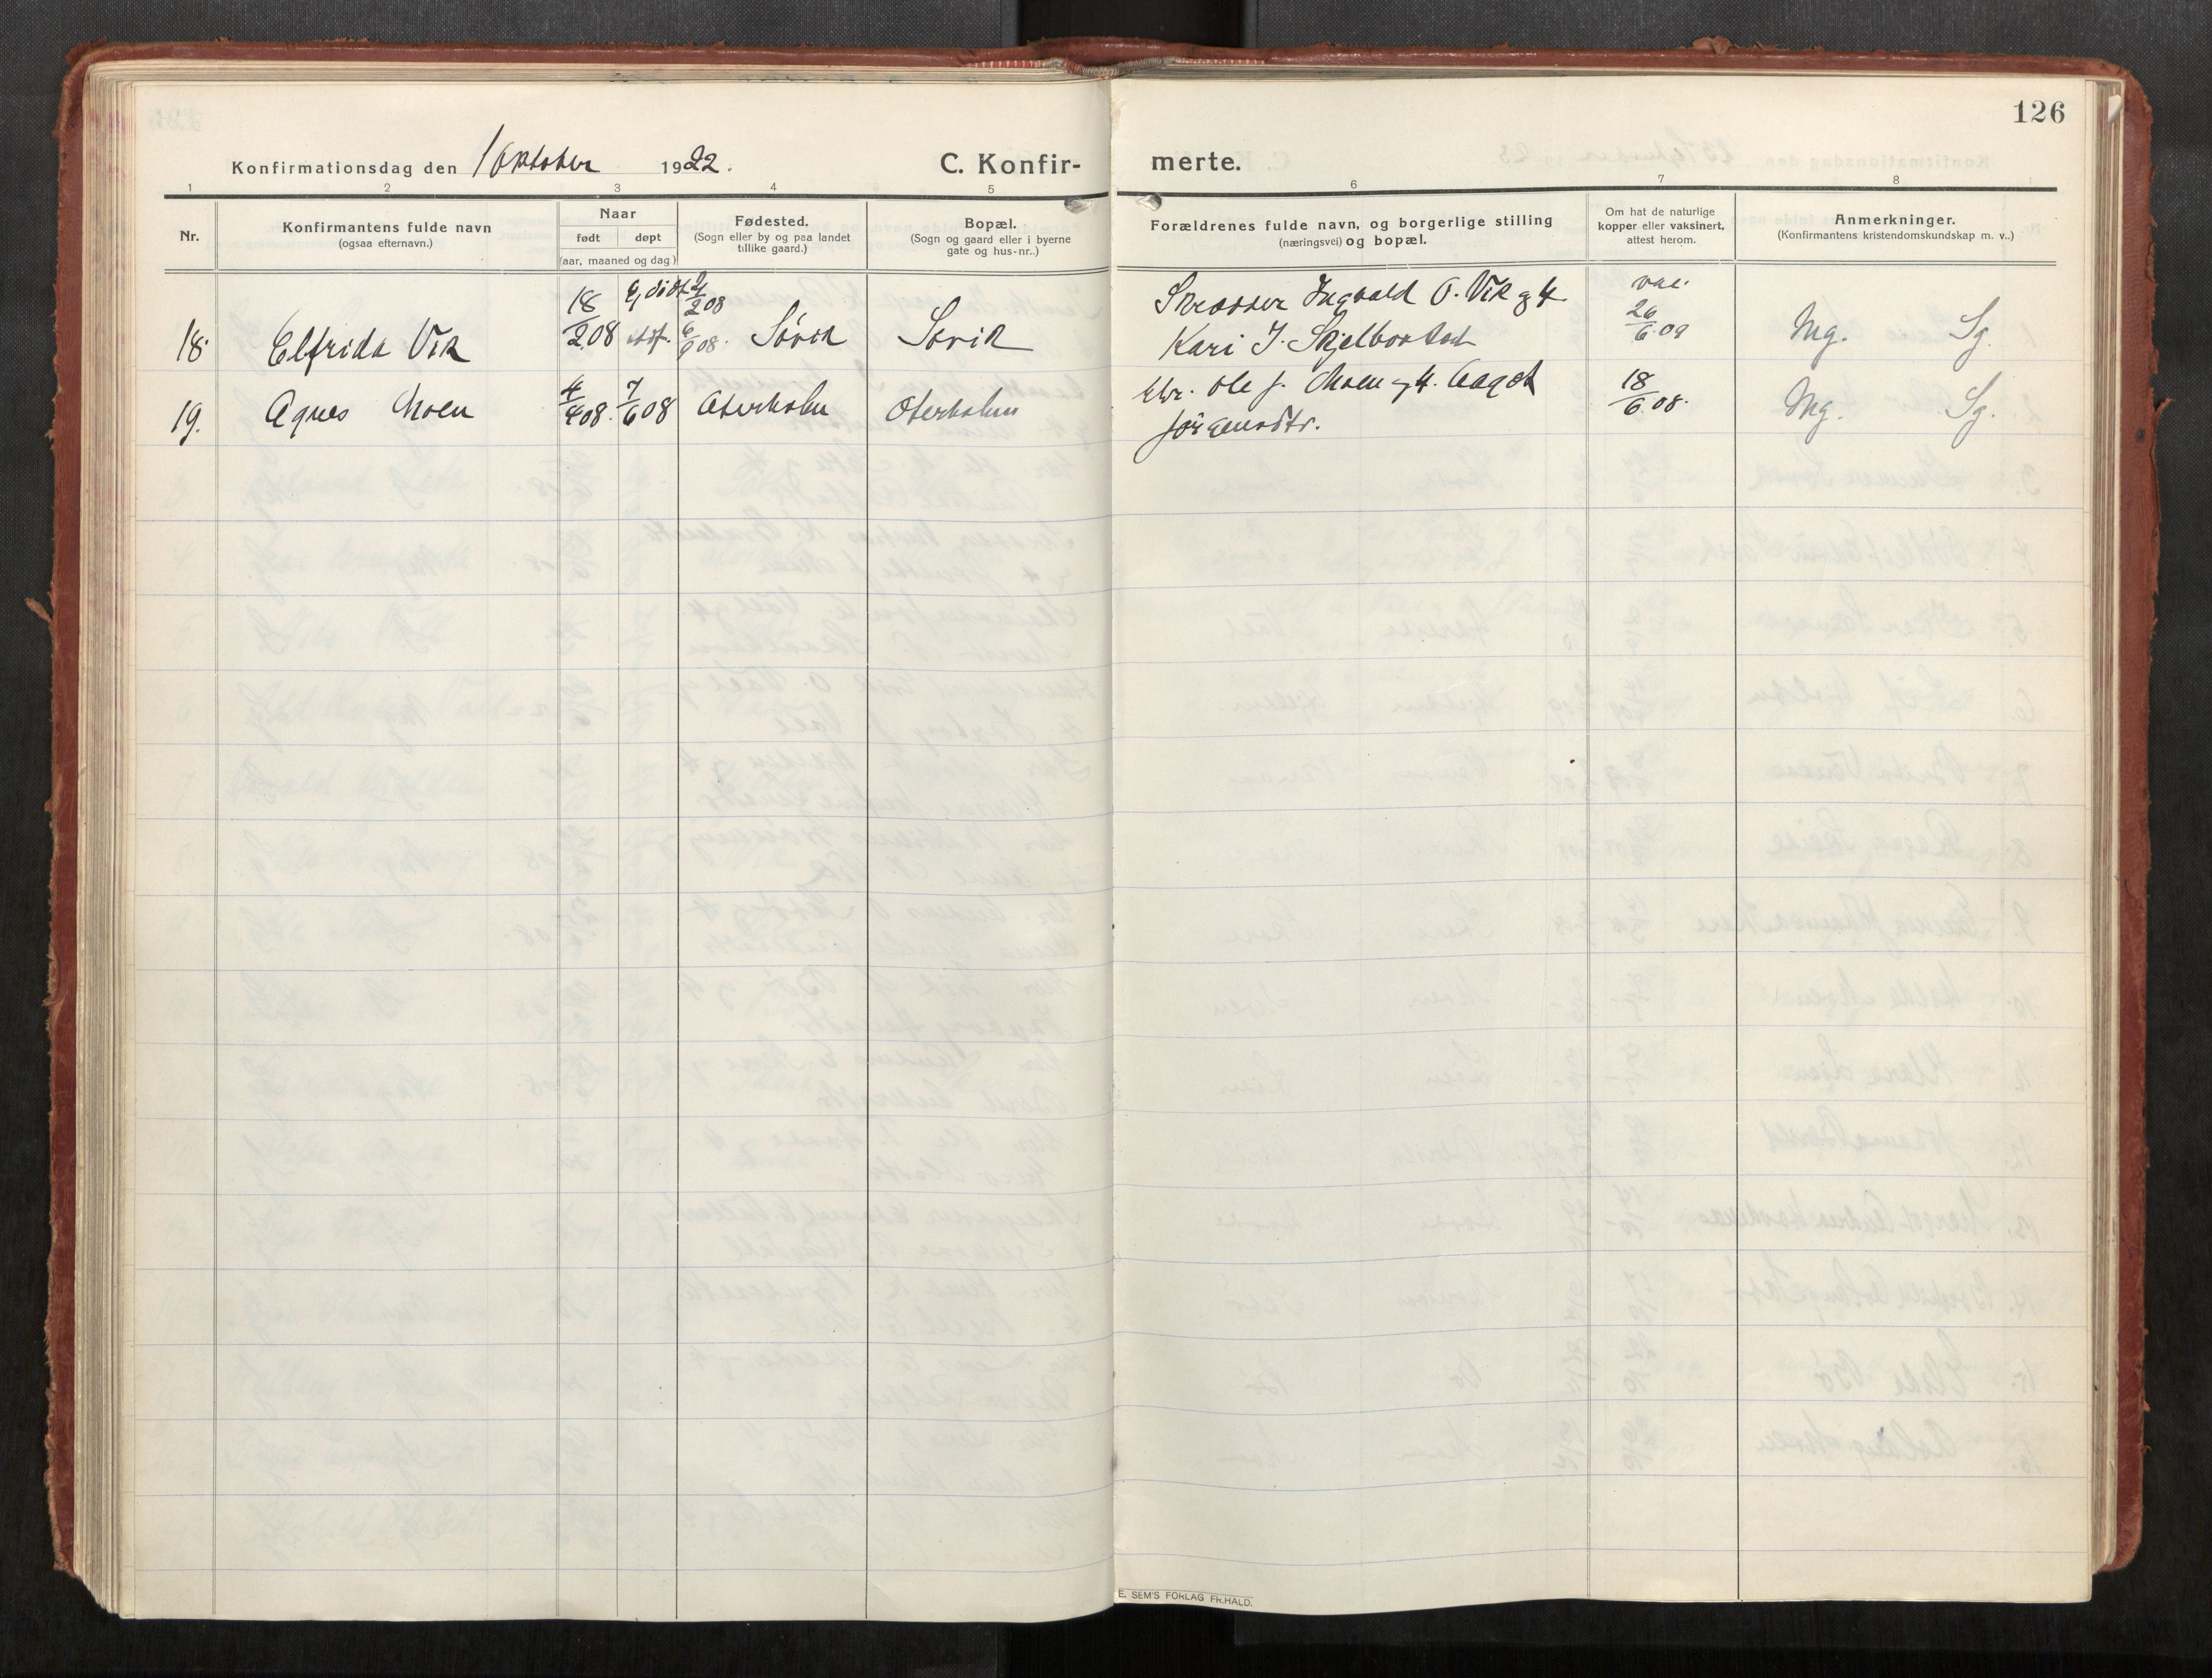 126
Konfirmationsdag den 1 Oktober 1922. C. Konfirmerte.
1 2 3 4 5 6 7 8
Nr.
Konfirmantens fulde navn
(ogsaa efternavn.)
Naar
født døpt
(aar, maaned og dag)
Fødested.
(Sogn eller by og paa landet
tillike gaard.)
Bopæl.
(Sogn og gaard eller i byerne
gate og hus-nr..)
Forældrenes fulde navn, og borgerlige stilling
(næringsvei) og bopæl.
Om hat de naturlige
kopper eller vaksinert,
attest herom.
Anmerkninger.
(Konfirmantens kristendomskundskap m. v..)
18. Elfrida Vik 18/2 08 Søvik Søvik
Ingvald O. Vik og H.
Kari J. vac. 26/6 09 Mg. Sg.
19. Agnes Moen 4/4 08. 7/6 08 Oterholm Oterholm
Ole J. Moen og H. Aagot
Jørgensdtr. 18/6 08. Mg. Sg.
E. SEM'S FORLAG FR.HALD.